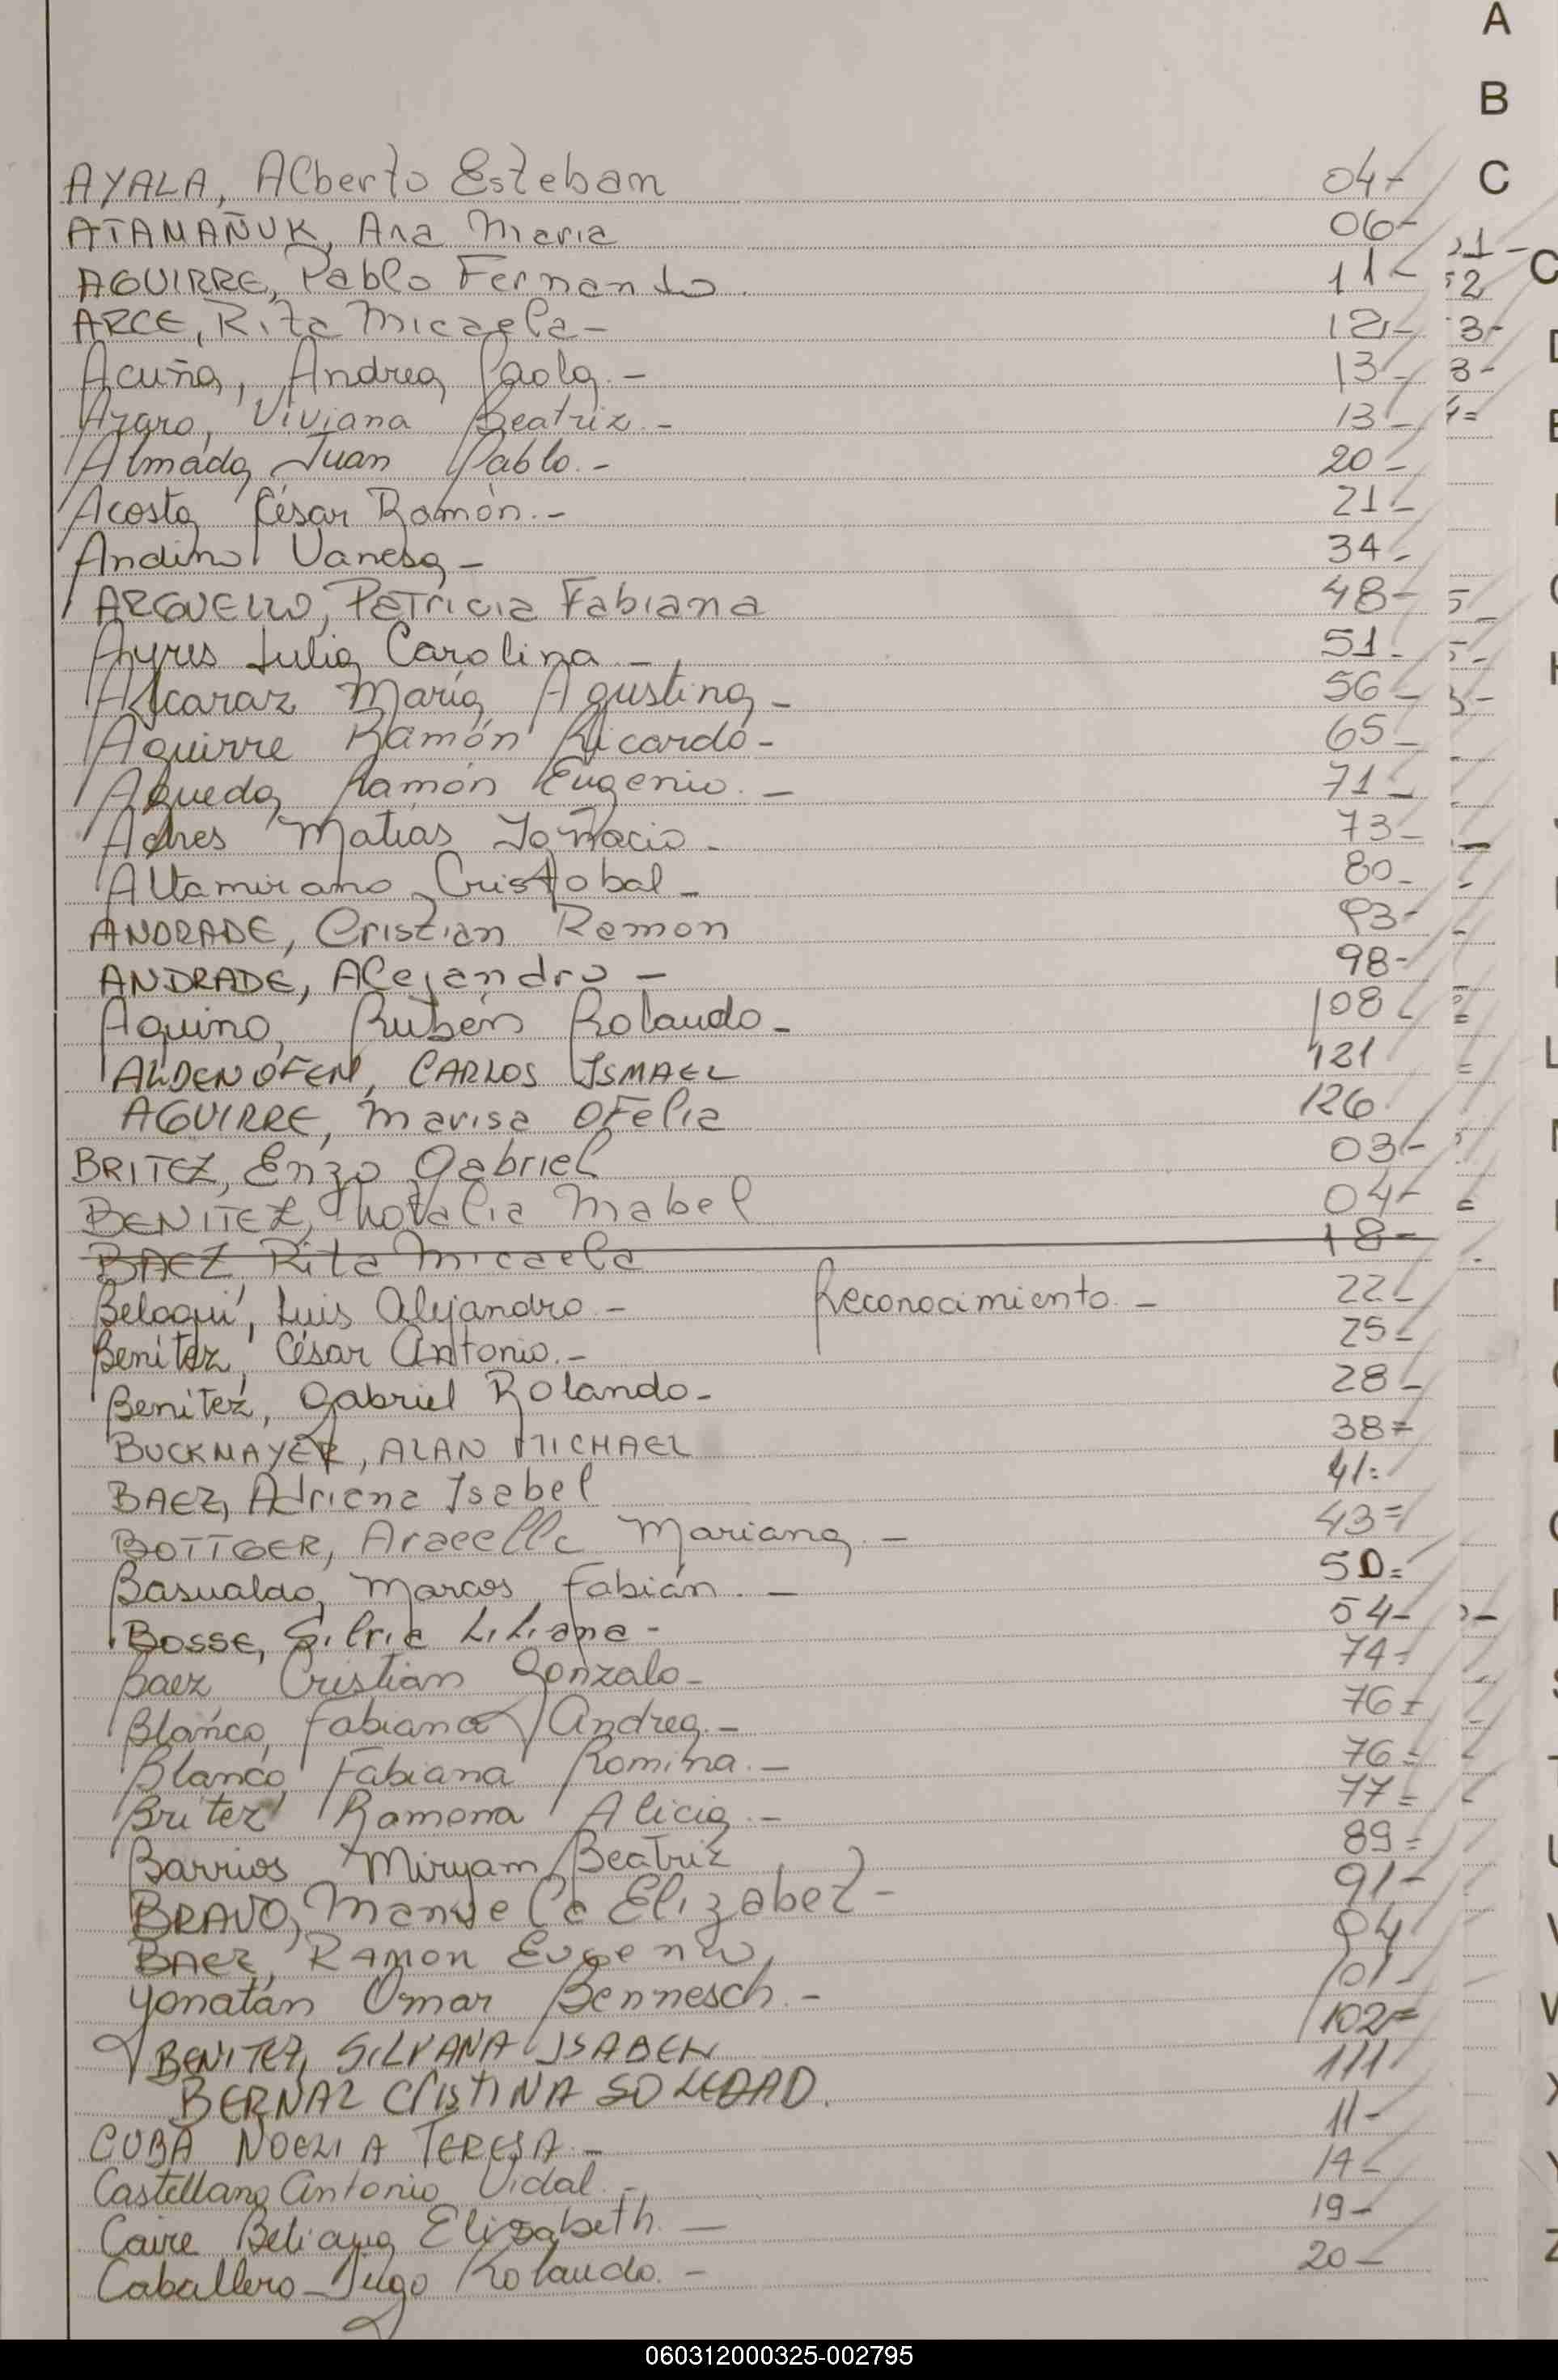 A
B
C
AYALA, Alberto Esteban 04-
ATAMAÑUK, Ana Maria 06-
AGUIRRE, Pablo Fernando. 11-
ARCE, Rita Micaela- 12-
Acuña, Andrea Paola.- 13-
Viviana Beatriz.- 13-
Almada Juan Pablo.- 20-
Acosta César Ramón.- 21-
Andino Vanesa- 34-
ARGUELLO, Patricia Fabiana 48-
Ayres Julia Carolina- 51-
Alcaraz María Agustina- 56-
Aguirre Ramón Ricardo- 65-
Ramón Eugenio.- 71-
Matías Ignacio- 73-
Altamirano Cristobal- 80-
ANDRADE, Cristian Ramon 93-
ANDRADE, Alejandro- 98-
Aquino, Rubén Rolando- 108-
ALDENOFEN, CARLOS ISMAEL 121
AGUIRRE, Marisa Ofelia 126
BRITEZ, Enzo Gabriel 03-
BENITEZ, Natalia Mabel 04-
BAEZ Rita Micaela 18-
Beloqui, Luis Alejandro- Reconocimiento.- 22-
Benitez, César Antonio.- 25-
Benitez, Gabriel Rolando- 28-
BUCKMAYER, ALAN MICHAEL 38=
BAEZ, Adriana Isabel 41=
BOTTGER, Mariana- 43=
Basualdo, Marcos Fabián.- 50=
BOSSE, Silvia Liliana- 54-
Baez Cristian Gonzalo- 74-
Blanco, Fabiana Andrea.- 76-
Blanco Fabiana Romina.- 76=
Britez Ramona Alicia- 77=
Barrios Miryam Beatriz 89=
BRAVO, Manuela Elizabet- 91-
BAEZ, RAMON Eugenio, 94
Yonatán Omar Bennesch.- 101-
BENITEZ, SILVANA ISABEL 102=
BERNAL CRISTINA SOLEDAD. 111
CUBA NOELIA TERESA- 11-
Castellano Antonio Vidal.- 14-
Caire Elizabeth.- 19-
Caballero Hugo Rolando.- 20-
060312000325-002795